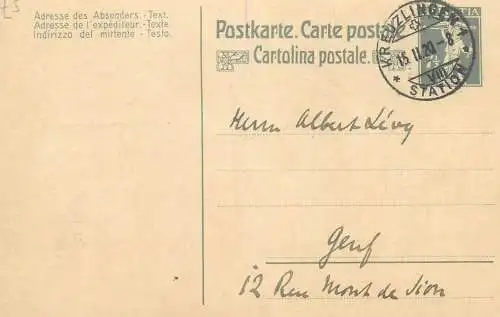 Adresse des Absenders.-Text.
Adresse de l'expéditeur.-Texte.
Indirizzo del mittente.-Testo.
Postkarte. Carte postale
Cartolina postale.
KREUZLINGEN 1
15.II.20.-8
VIII
STATION
Herrn Albert Lévy
Genf
12 Rue Mont de Sion